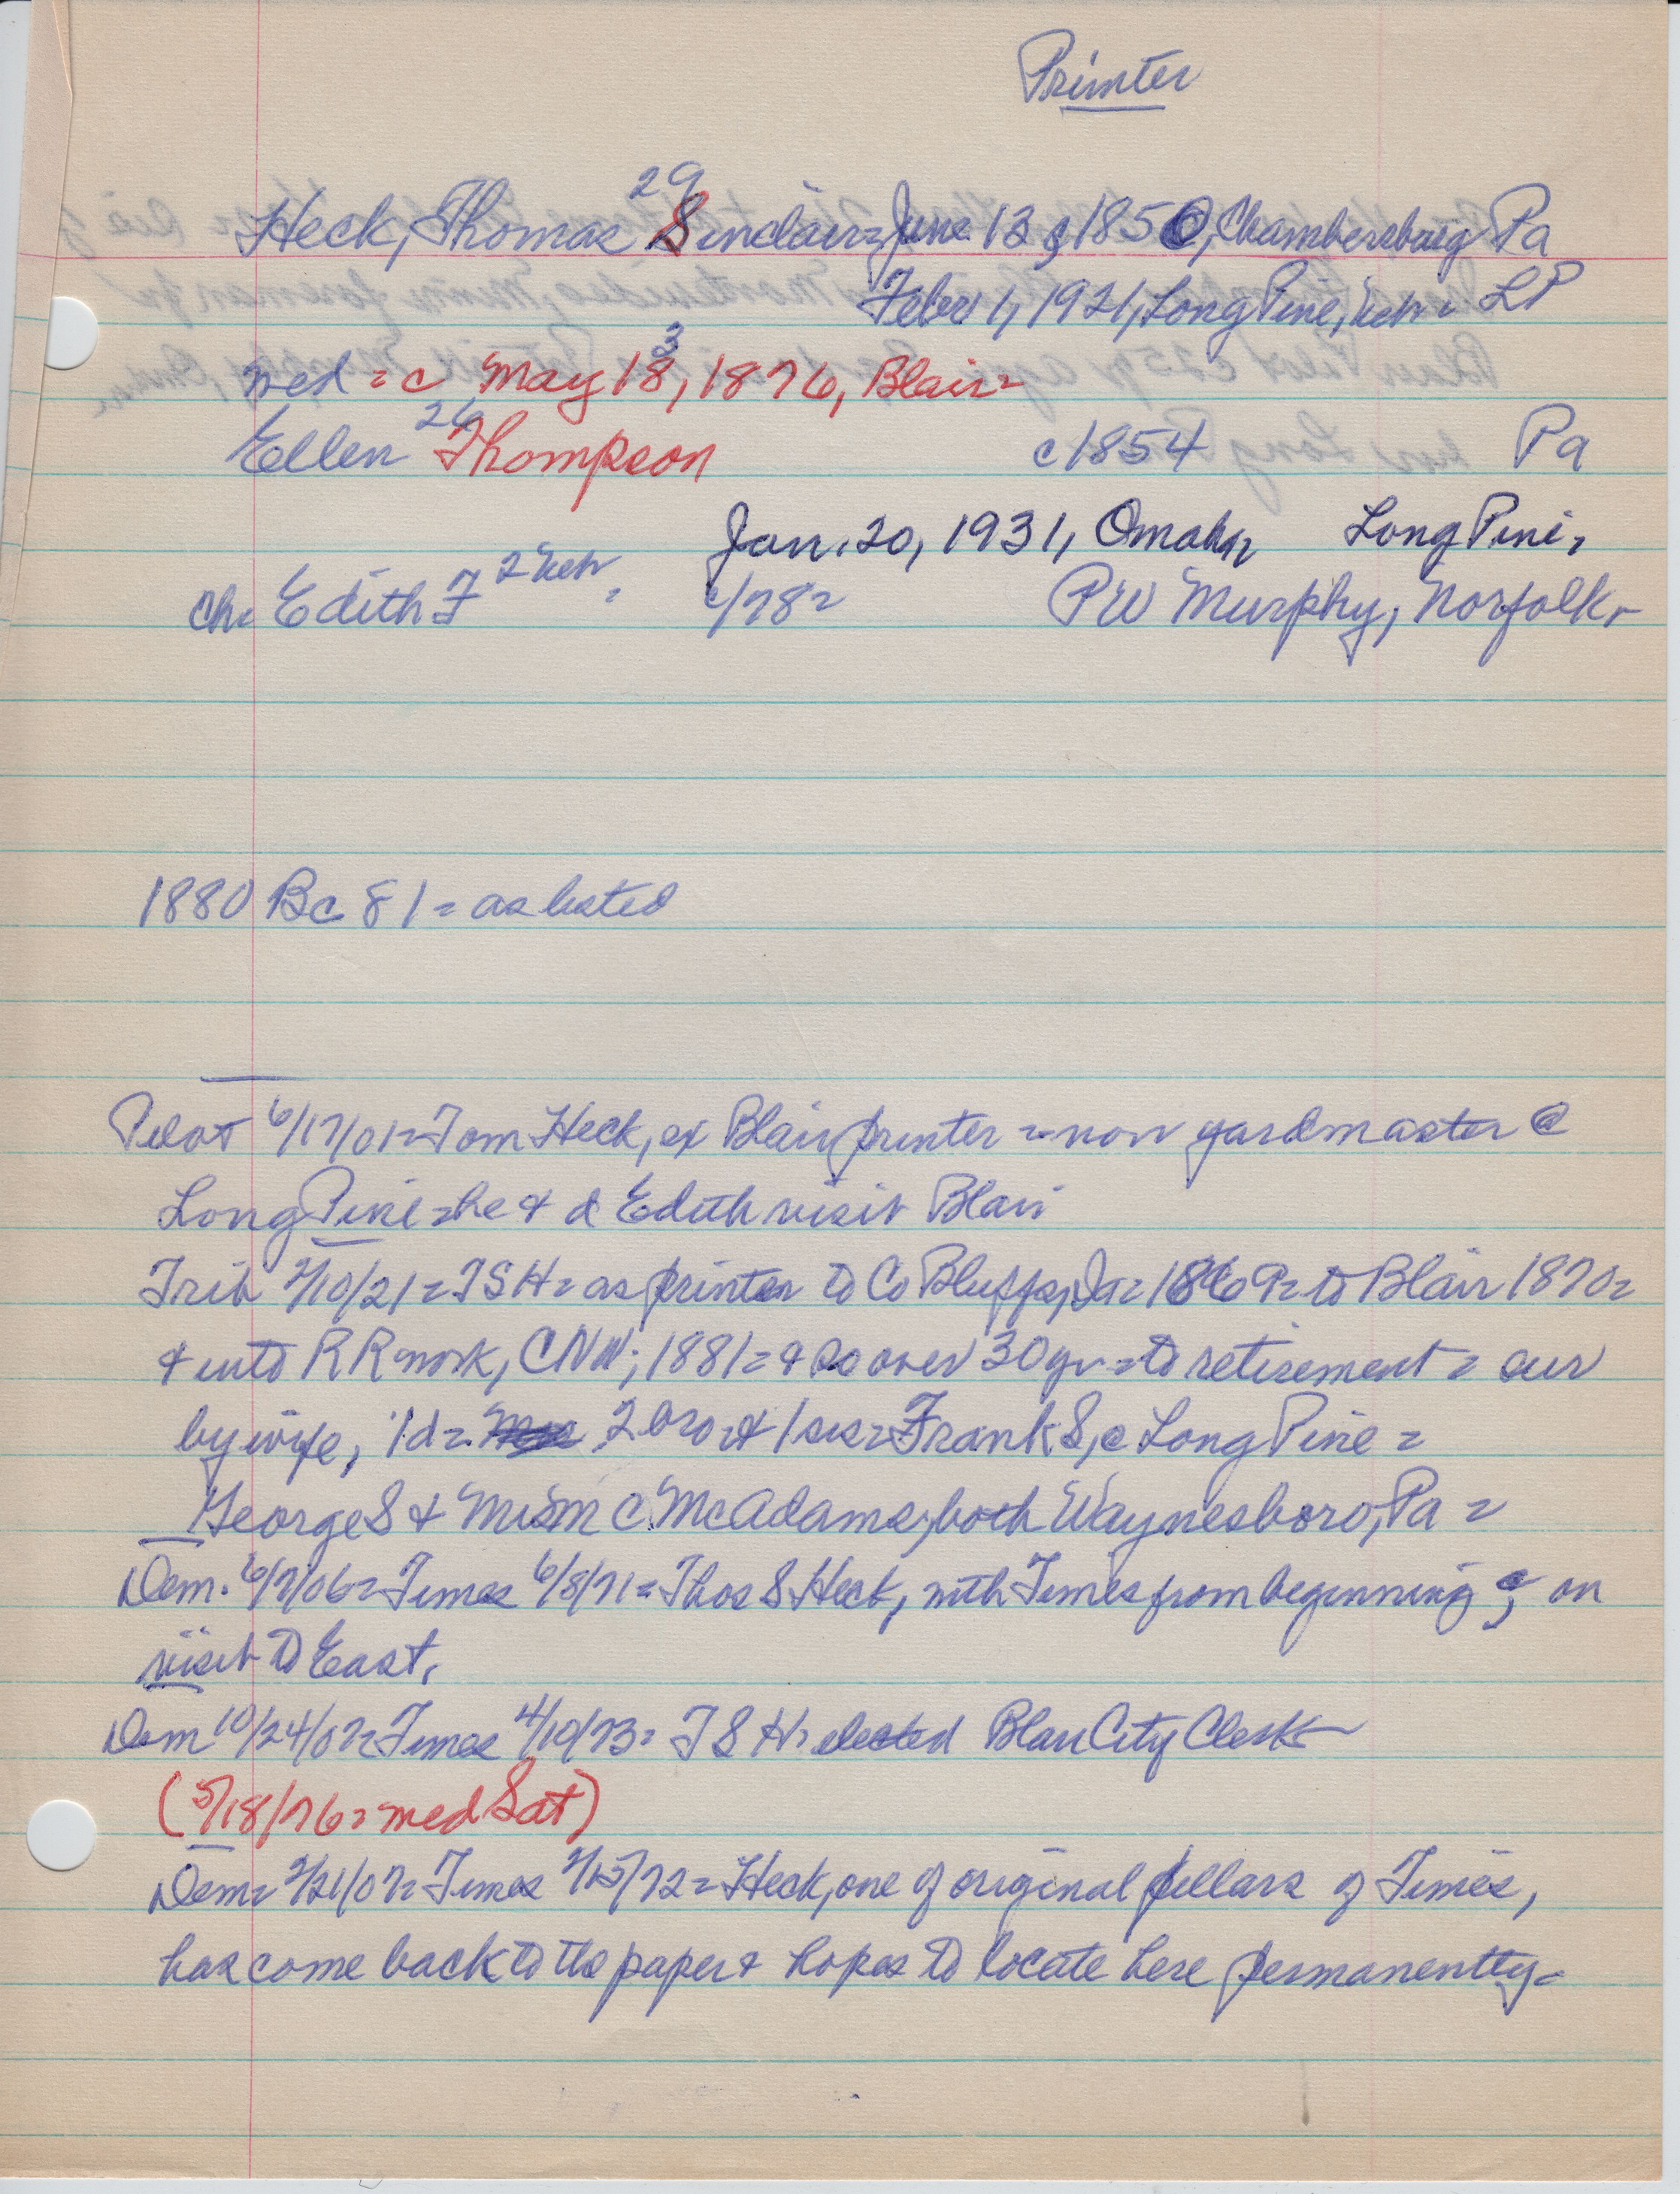 Printer
29
Heck, Thomas Sinclair = June 13, 1850, Chambersburg Pa
Febr 1, 1921, Long Pine, Neb = LP
3
wed = c May 18, 1876, Blair =
26
Ellen Thompson c1854 Pa
Jan. 20, 1931, Omaha, Long Pine,
ch. Edith F 2 Neb, c/78 = PW Murphy, Norfolk,
1880 Bc 81 = as listed
Pilot 6/17/01 = Tom Heck, ex Blair printer = now yardmaster @
Long Pine = he & d Edith visit Blair
Trib 2/10/21 = TSH = as printer to Co Bluffs, Ia = 1869 = to Blair 1870 =
& into RR work, CNW; 1881 = & so over 30 yr = to retirement = sur
by wife, 1d = 2 bro & 1 sis = Frank S, c Long Pine =
George S & Mrs M C McAdams, both Waynesboro, Pa =
Dem. 6/7/06 = Times 6/8/71 = Thos S Heck, with Times from beginning, on
visit to East,
Dem 10/24/07 = Times 4/10/73 = T S H = elected Blair City Clerk
(5/18/76 = wed Sat)
Dem = 2/21/07 = Times 2/15/72 = Heck, one of original pillars of Times,
has come back to the paper & hopes to locate here permanently =